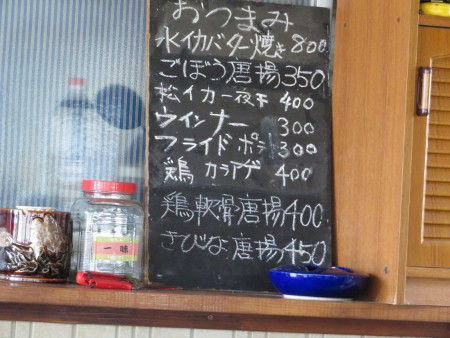 おつまみ
水イカバター焼き 800
ごぼう唐揚 350
松イカ一夜干 400
ウインナー 300
フライドポテ 300
鶏カラアゲ 400
鶏軟骨唐揚 400
きびな唐揚 450
一味